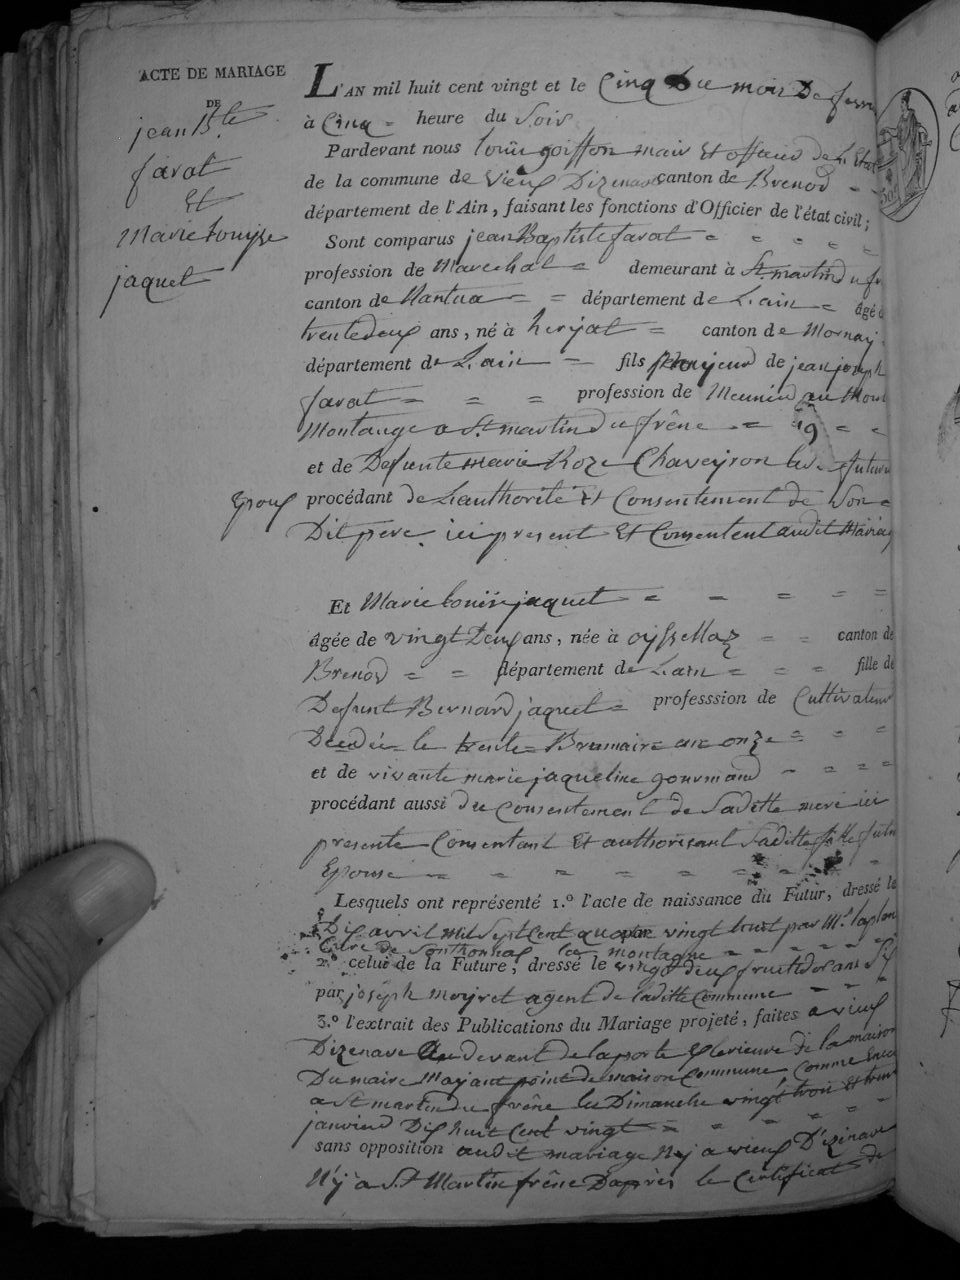 ACTE DE MARIAGE
DE
jean B.te
favat
Et
Marie Louyse
jaquet
L'AN mil huit cent vingt et le Cinq Du mois De
à Cinq = heure du Soir
Pardevant nous Louis goiffon mair Et officié de L'Etat
de la commune de vieux Dizenave canton de Brenod
département de l'Ain, faisant les fonctions d'Officier de l'état civil;
Sont comparus jean Baptiste favat = = = = =
profession de Marechal = demeurant à St. martin du fr
canton de Nantua = = département de L'ain = âgé d
trente deux ans, né à heryat = canton de Mornay
département de L'ain = fils de jean joseph
favat = = = profession de Meunier au Moul
Montange a St. martin du frêne = = =
et de Defunte marie Roze Chaveyron Le futur
Epoux procédant de L'authorité Et Consentement de Son =
Dit pere, ici present Et Consentent audit Mariag
Et Marie Louise jaquet = = = = =
âgée de vingt Deux ans, née à oyssellaz = = canton de
Brenod = = département de L'ain = = = fille de
Defunt Bernard jaquet = professsion de Cultivateur
Decedé = le trente = Brumaire an onze = = = =
et de vivante marie jaqueline gourmand = = = =
procédant aussi du Consentement de Sa ditte mere ici
presente Consentant Et authorisant Saditte fille futu
Epouse = = = = = = = =
Lesquels ont représenté 1.º l'acte de naissance du Futur, dressé le
Dix avril mil Sept Cent quatre vingt huit par M.r
Curé de Sonthonnas La montagne = = = = =
2.º celui de la Future, dressé le vingt deux fructidor an Six
par joseph moyret agent de laditte Commune = = =
3.º l'extrait des Publications du Mariage projeté, faites a vieux
Dizenave Au devant de la porte Exterieure de la maison
Du maire Nayant point de maison Commune, Comme
a St martin du frêne les Dimanche vingt trois Et trente
janvier Dix huit Cent vingt = = = = = =
sans opposition audit mariage Ny a vieux D'izinave
N'y a St Martin frêne D'après le Certificat de